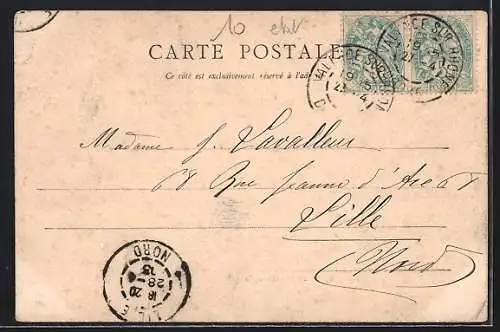 10
CARTE POSTALE
Ce côté est exclusivement réservé à l'adresse
VALENCE SUR RHONE
VALENCE SUR RHONE
Madame J. Lavalleur
68 Rue Jeanne d'Arc 68
Lille
(Nord)
LILLE
NORD